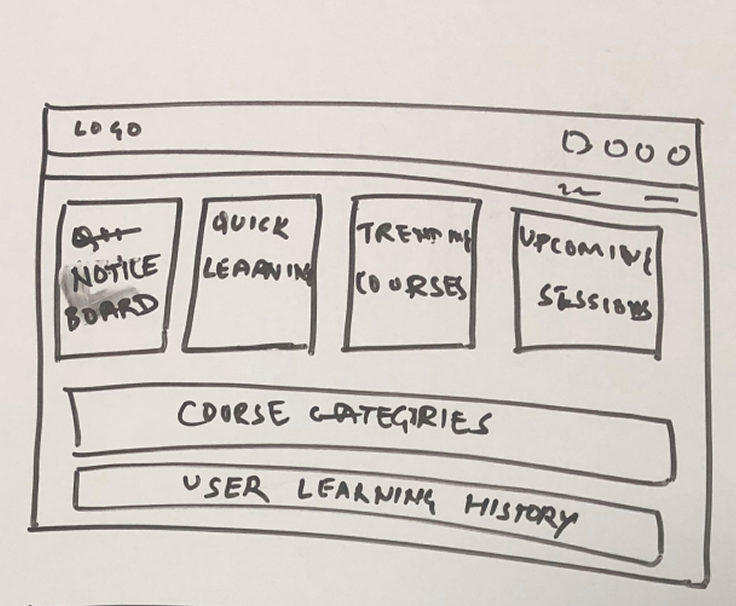 LOGO
NOTICE
BOARD
QUICK
LEARNING
TRENDING
COURSES
UPCOMING
SESSIONS
COURSE CATEGORIES
USER LEARNING HISTORY